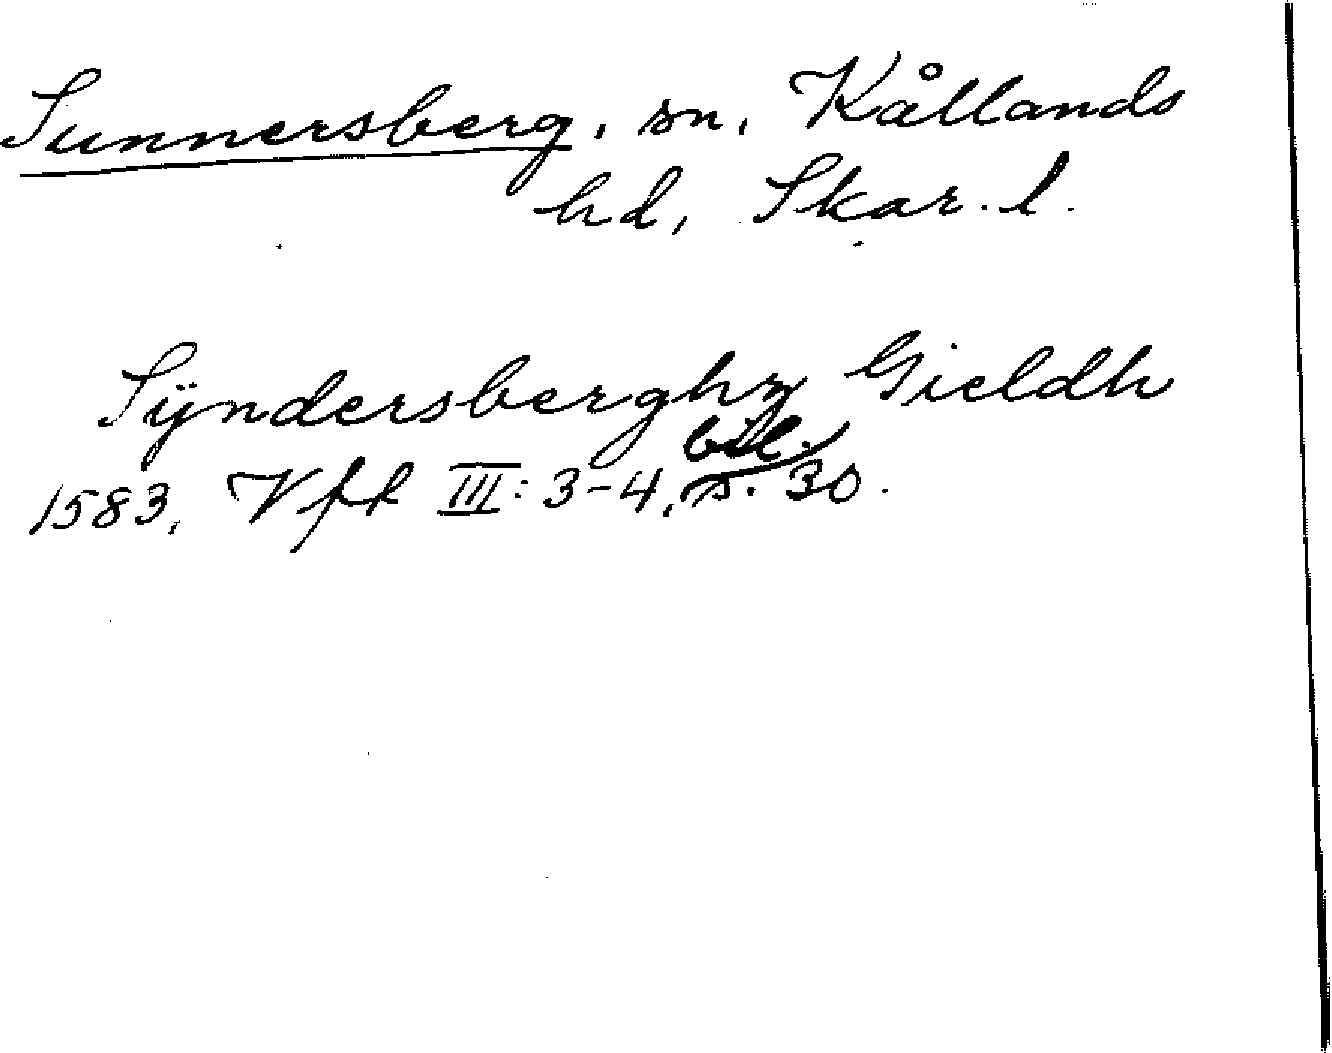 Sunnersberg, sn, Kållands
hd, Skar. l.
Sÿndersberghz Gieldh
1583, Vft III: 3-4, bil. 30.